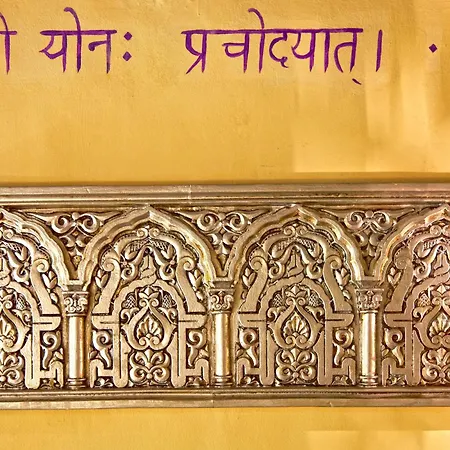 यो नः प्रचोदयात्। ·